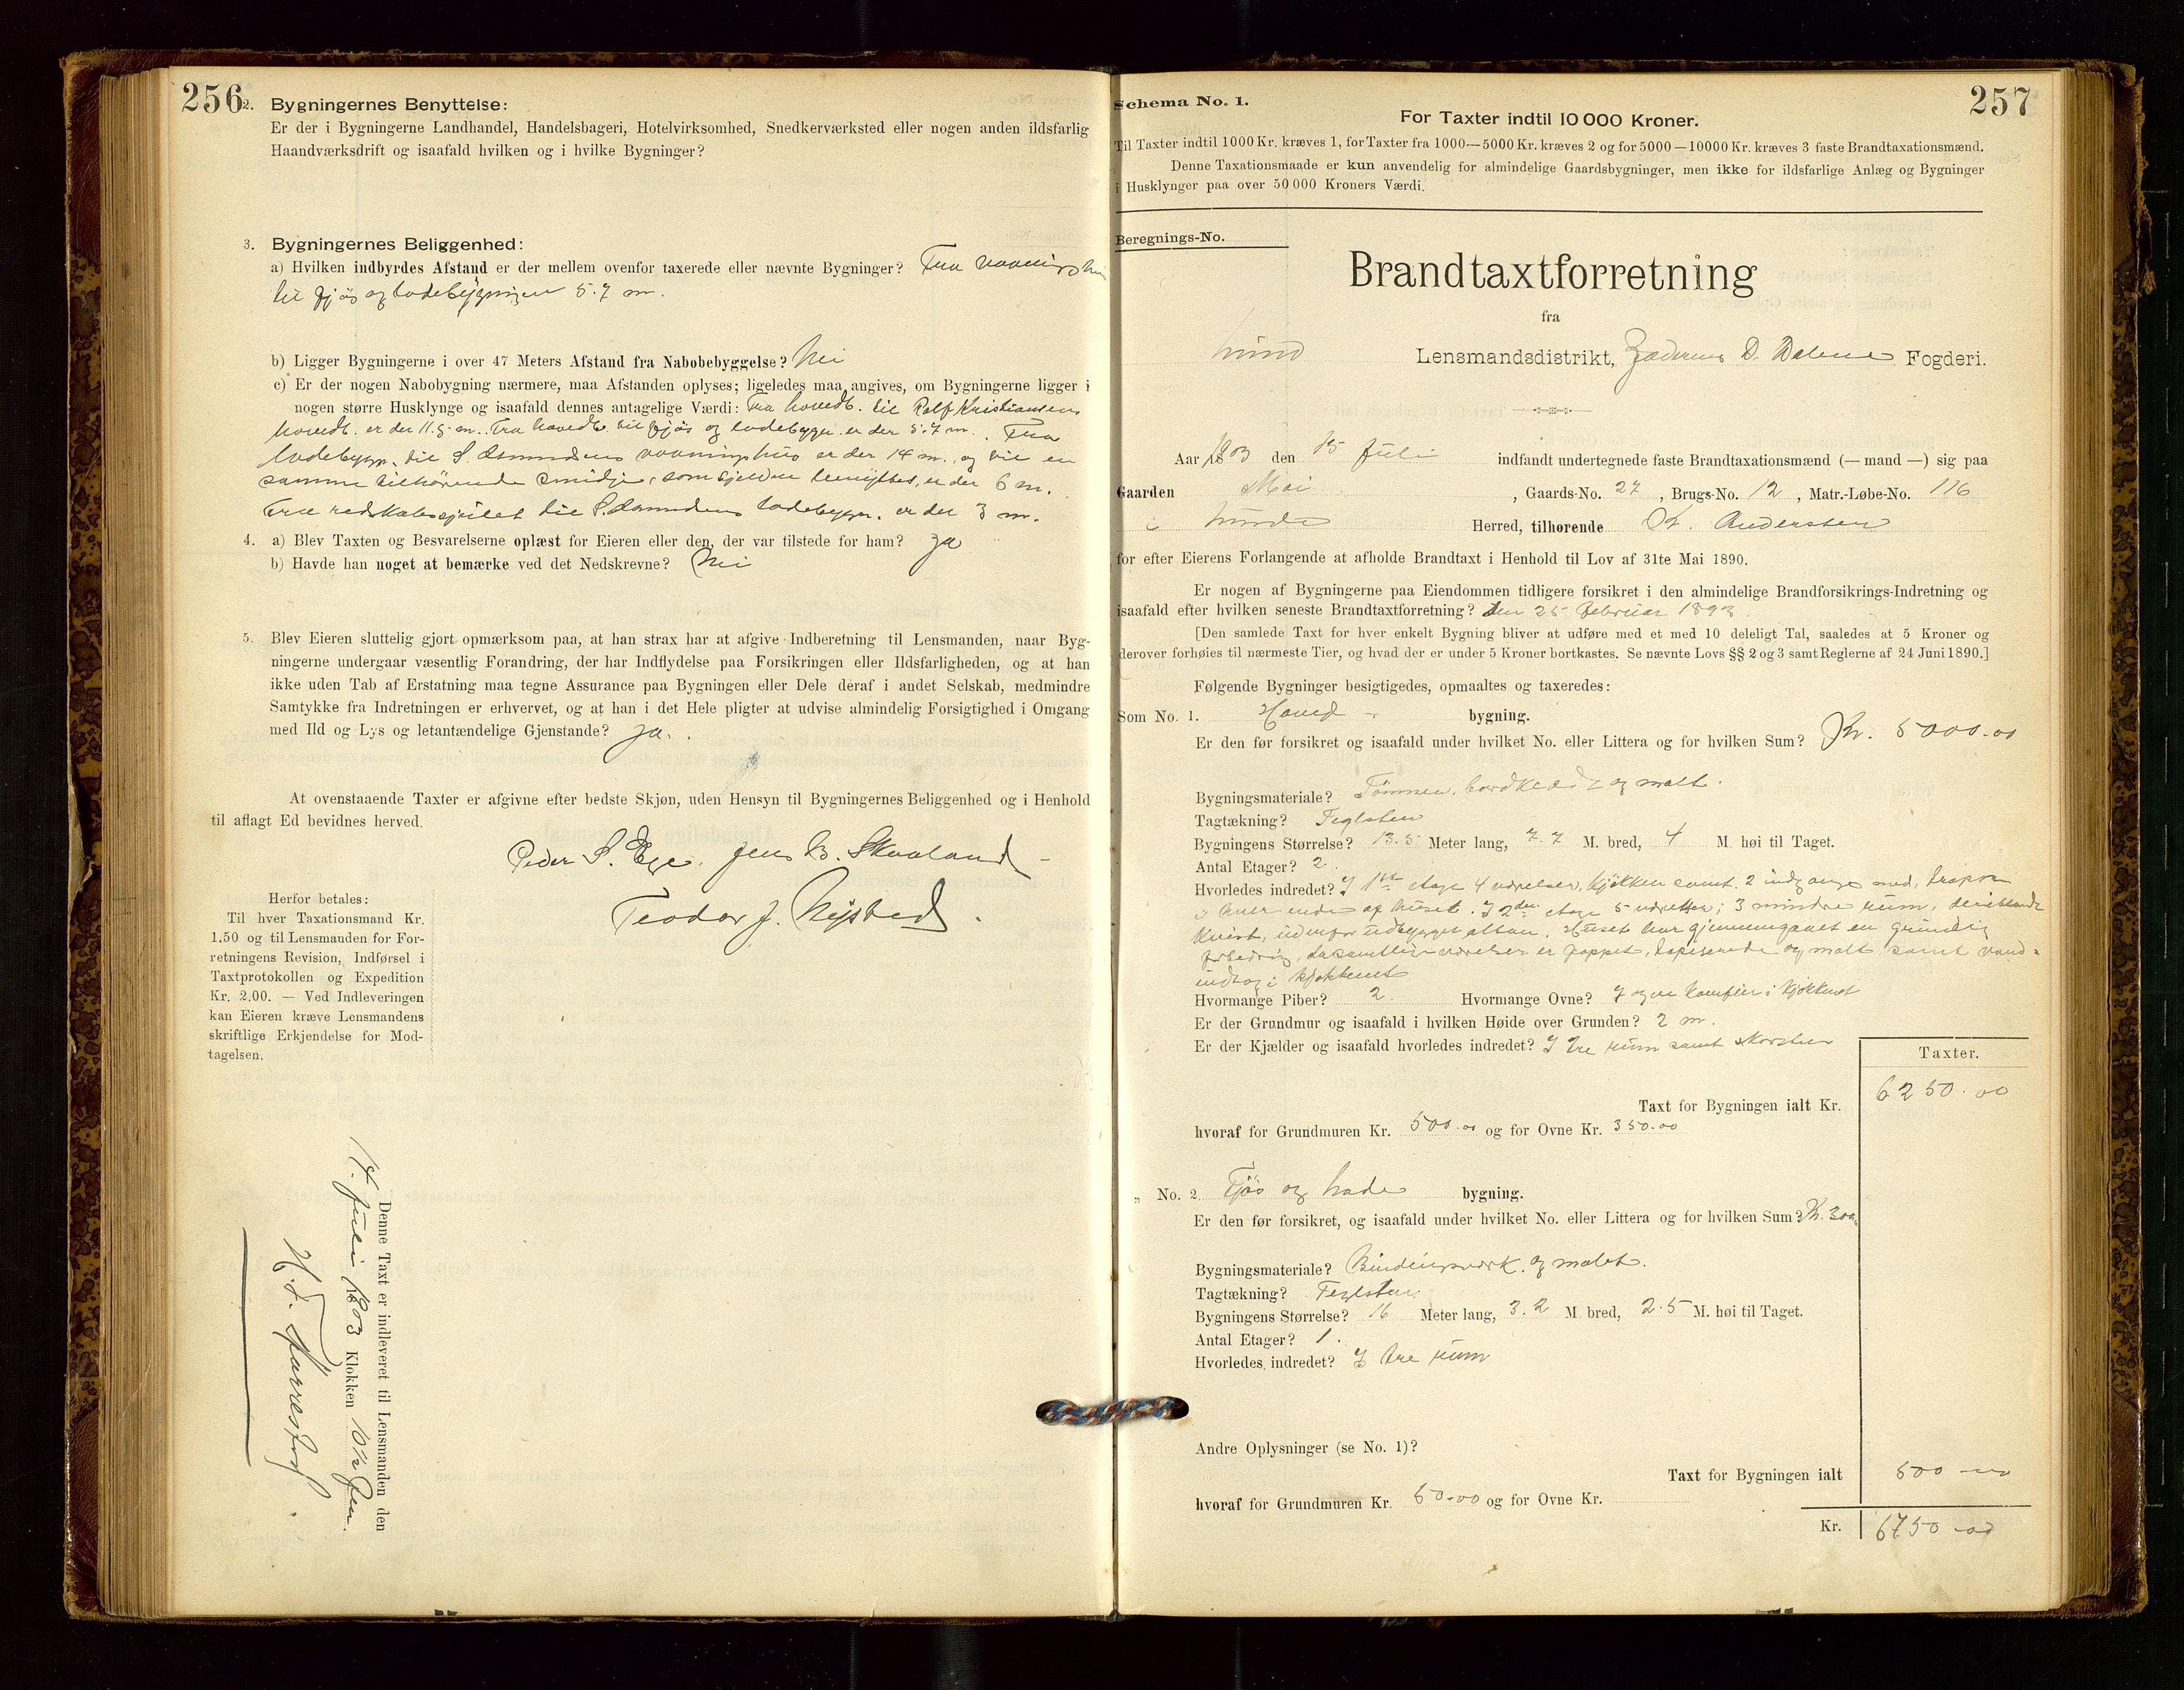 256
2. Bygningernes Benyttelse:
Er der i Bygningerne Landhandel, Handelsbageri, Hotelvirksomhed, Snedkerværksted eller nogen anden ildsfarlig
Haandværksdrift og isaafald hvilken og i hvilke Bygninger?
3. Bygningernes Beliggenhed:
a) Hvilken indbyrdes Afstand er der mellem ovenfor taxerede eller nævnte Bygninger? Fra vaaningshus
til fjøs og ladebygningen 5.7 m.
b) Ligger Bygningerne i over 47 Meters Afstand fra Nabobebyggelse? Nei
c) Er der nogen Nabobygning nærmere, maa Afstanden oplyses; ligeledes maa angives, om Bygningerne ligger i
nogen større Husklynge og isaafald dennes antagelige Værdi: Fra hovedb. til Rolf Kristiansens
hovedb. er der 11.5 m. Fra hovedb. til fjøs og ladebygn. er der 5.7 m. Fra
ladebygn. til S. Asmundsens vaaningshus er der 14 m. og til en
samme tilhørende smidje, som sjelden benyttes, er der 6 m.
Fra redskabsskjulet til S. Asmundsens ladebygn. er der 3 m.
4. a) Blev Taxten og Besvarelserne oplæst for Eieren eller den, der var tilstede for ham? Ja
b) Havde han noget at bemærke ved det Nedskrevne? Nei
5. Blev Eieren sluttelig gjort opmærksom paa, at han strax har at afgive Indberetning til Lensmanden, naar Byg-
ningerne undergaar væsentlig Forandring, der har Indflydelse paa Forsikringen eller Ildsfarligheden, og at han
ikke uden Tab af Erstatning maa tegne Assurance paa Bygningen eller Dele deraf i andet Selskab, medmindre
Samtykke fra Indretningen er erhvervet, og at han i det Hele pligter at udvise almindelig Forsigtighed i Omgang
med Ild og Lys og letantændelige Gjenstande? Ja.
At ovenstaaende Taxter er afgivne efter bedste Skjøn, uden Hensyn til Bygningernes Beliggenhed og i Henhold
til aflagt Ed bevidnes herved.
Peder S. Ege. Jens B. Skaaland
Teodor J. Nysted
Herfor betales:
Til hver Taxationsmand Kr.
1.50 og til Lensmanden for For-
retningens Revision, Indførsel i
Taxtprotokollen og Expedition
Kr. 2.00. — Ved Indleveringen
kan Eieren kræve Lensmandens
skriftlige Erkjendelse for Mod-
tagelsen.
Denne Taxt er indleveret til Lensmanden den
17. Juli 1903 Klokken 10½ Fm.
257
Schema No. 1.
For Taxter indtil 10 000 Kroner.
Til Taxter indtil 1000 Kr. kræves 1, for Taxter fra 1000—5000 Kr. kræves 2 og for 5000—10000 Kr. kræves 3 faste Brandtaxationsmænd.
Denne Taxationsmaade er kun anvendelig for almindelige Gaardsbygninger, men ikke for ildsfarlige Anlæg og Bygninger
i Husklynger paa over 50 000 Kroners Værdi.
Beregnings-No.
Brandtaxtforretning
fra
Lund Lensmandsdistrikt, Jæderens D. Dalene Fogderi.
Aar 1903 den 15 Juli indfandt undertegnede faste Brandtaxationsmænd (— mand —) sig paa
Gaarden Moi, Gaards-No. 27, Brugs-No. 12, Matr.-Løbe-No. 116
i Lunde Herred, tilhørende Andersten
for efter Eierens Forlangende at afholde Brandtaxt i Henhold til Lov af 31te Mai 1890.
Er nogen af Bygningerne paa Eiendommen tidligere forsikret i den almindelige Brandforsikrings-Indretning og
isaafald efter hvilken seneste Brandtaxtforretning? den 25 Februar 1893
[Den samlede Taxt for hver enkelt Bygning bliver at udføre med et med 10 deleligt Tal, saaledes at 5 Kroner og
derover forhøies til nærmeste Tier, og hvad der er under 5 Kroner bortkastes. Se nævnte Lovs §§ 2 og 3 samt Reglerne af 24 Juni 1890.]
Følgende Bygninger besigtigedes, opmaaltes og taxeredes:
Som No. 1. Hoved - bygning.
Er den før forsikret og isaafald under hvilket No. eller Littera og for hvilken Sum? Kr. 5000.00
Bygningsmateriale? Tømmer, bordklædt og malt.
Tagtækning? Teglsten
Bygningens Størrelse? 13.5 Meter lang, 7.7 M. bred, 4 M. høi til Taget.
Antal Etager? 2
Hvorledes indredet? I 1ste etage 4 værelser, kjøkken samt 2 indgange med trapper
i hver ende af huset. I 2den etage 5 værelser; 3 mindre rum, deriblandt
kvist, udenfor udbygget altan. Huset har gjennemgaaet en grundig
forbedring, da samtlige værelser er pappet, tapiserede og malt samt vand-
indlag i kjøkkenet
Hvormange Piber? 2. Hvormange Ovne? 7 og en komfur i kjøkkenet
Er der Grundmur og isaafald i hvilken Høide over Grunden? 2 m.
Er der Kjælder og isaafald hvorledes indredet? I tre rum samt skorsten
Taxter.
Taxt for Bygningen ialt Kr. 6250.00
hvoraf for Grundmuren Kr. 500.00 og for Ovne Kr. 350.00
„ No. 2 Fjøs og lade bygning.
Er den før forsikret, og isaafald under hvilket No. eller Littera og for hvilken Sum? Kr. 300
Bygningsmateriale? Bindingsverk og malet.
Tagtækning? Teglsten
Bygningens Størrelse? 16 Meter lang, 3.2 M. bred, 2.5 M. høi til Taget.
Antal Etager? 1.
Hvorledes indredet? I tre rum
Andre Oplysninger (se No. 1)?
Taxt for Bygningen ialt 500 -
hvoraf for Grundmuren Kr. 50.00 og for Ovne Kr.
Kr. 6750 -00